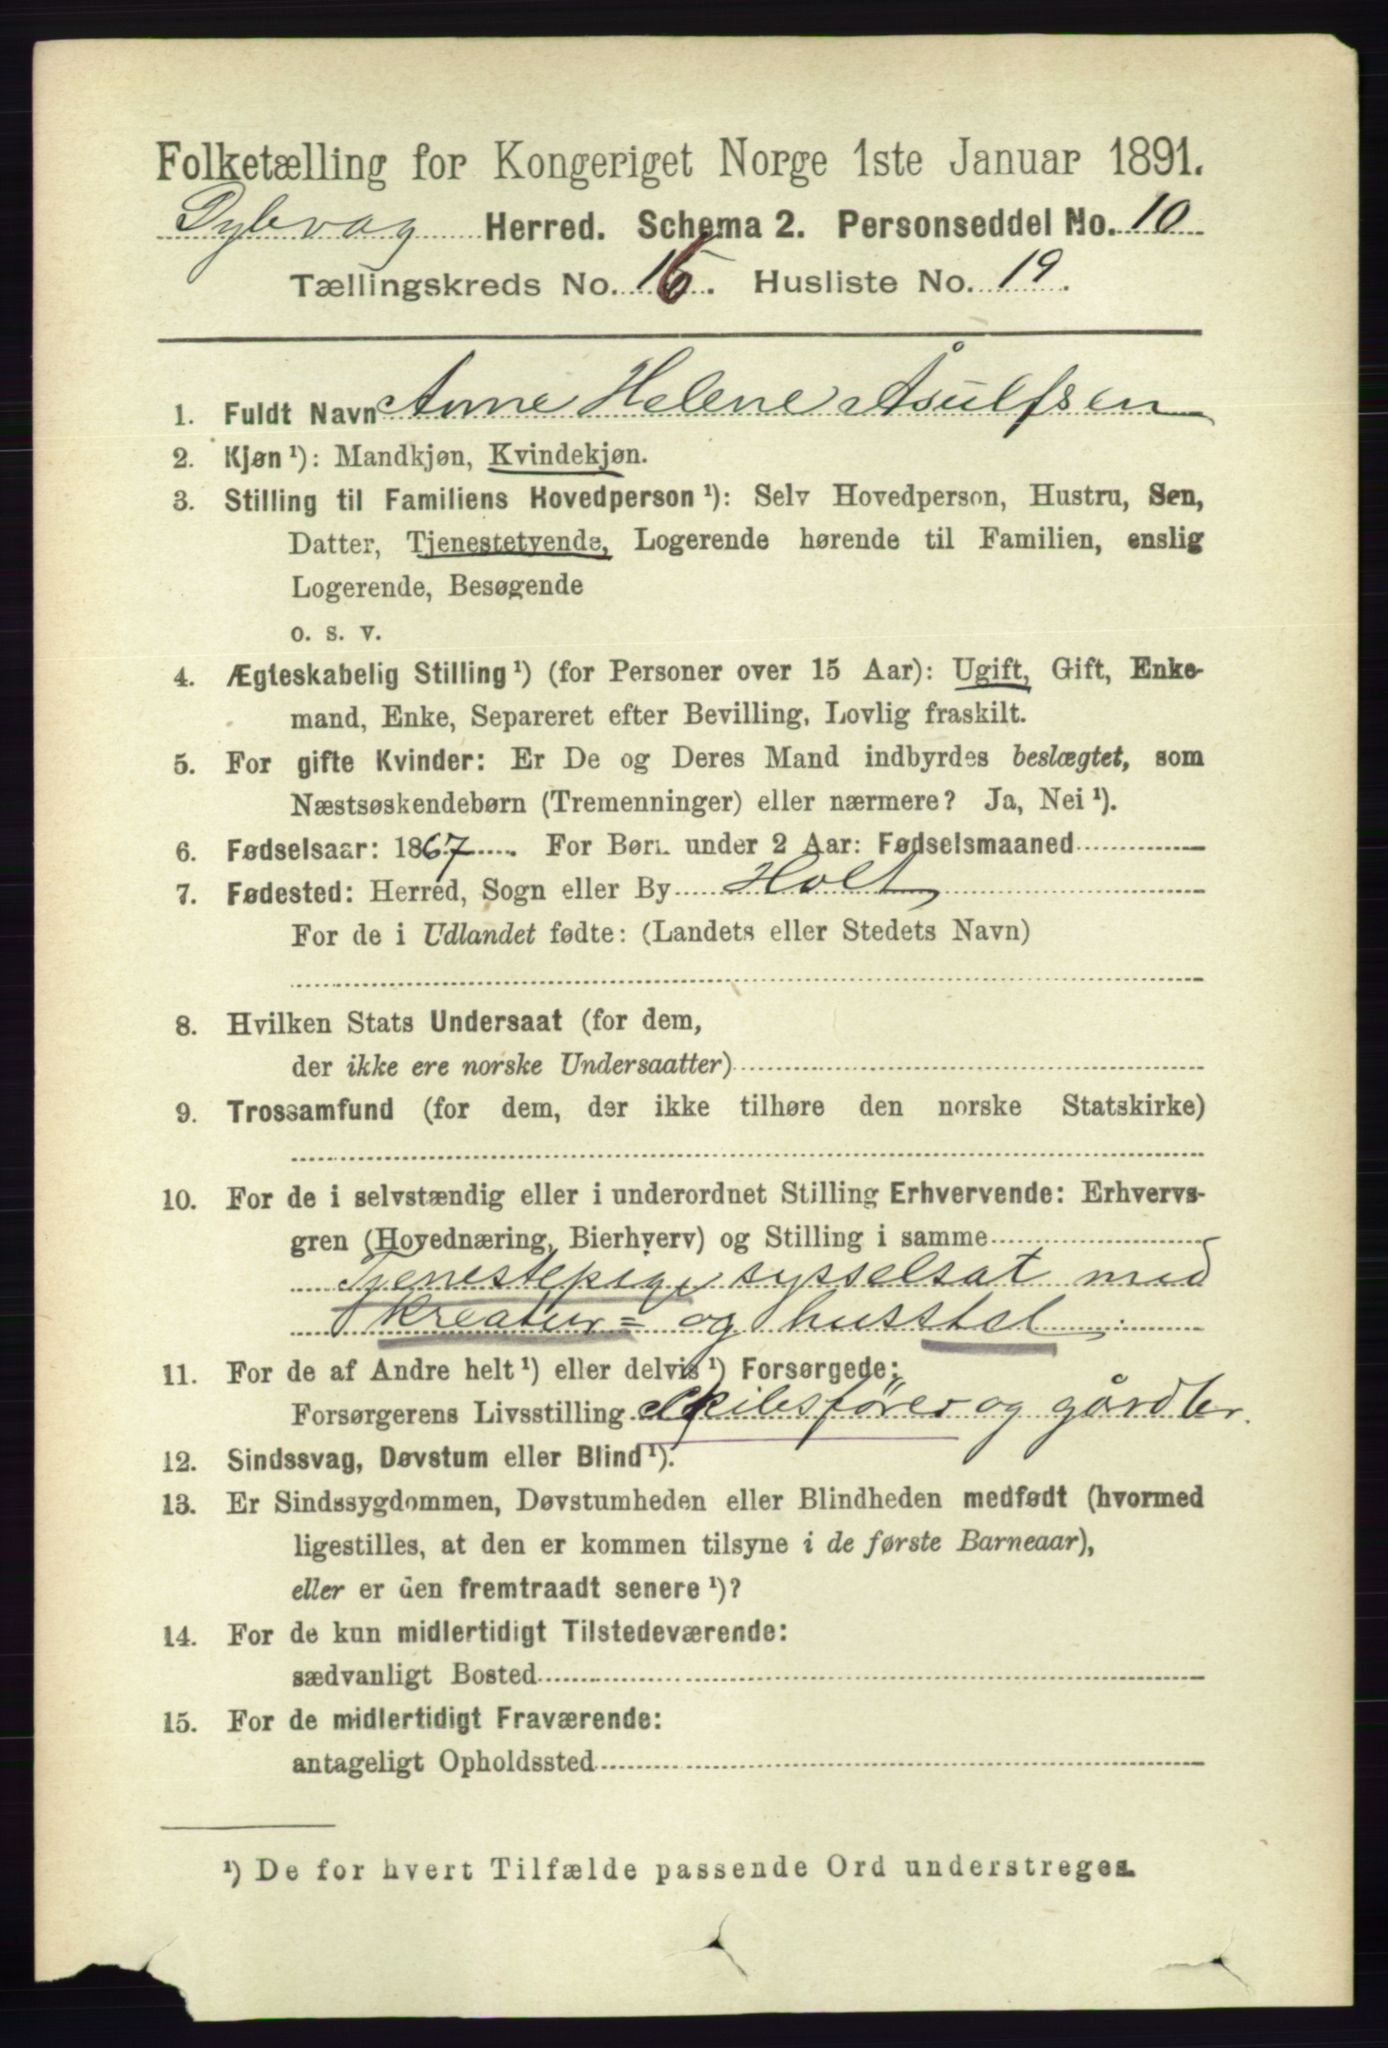 Folketælling for Kongeriget Norge 1ste Januar 1891.
Dybvag Herred. Schema 2. Personseddel No. 10
Tællingskreds No. 16. Husliste No. 19.
1. Fuldt Navn Anne Helene Åsulfsen
2. Kjøn ¹): Mandkjøn, Kvindekjøn.
3. Stilling til Familiens Hovedperson ¹): Selv Hovedperson, Hustru, Søn,
Datter, Tjenestetyende, Logerende hørende til Familien, enslig
Logerende, Besøgende
o. s. v.
4. Ægteskabelig Stilling ¹) (for Personer over 15 Aar): Ugift, Gift, Enke-
mand, Enke, Separeret efter Bevilling, Lovlig fraskilt.
5. For gifte Kvinder: Er De og Deres Mand indbyrdes beslægtet, som
Næstsøskendebørn (Tremenninger) eller nærmere? Ja, Nei ¹).
6. Fødselsaar: 1867. For Børn under 2 Aar: Fødselsmaaned
7. Fødested: Herred, Sogn eller By Holt
For de i Udlandet fødte: (Landets eller Stedets Navn)
8. Hvilken Stats Undersaat (for dem,
der ikke ere norske Undersaatter)
9. Trossamfund (for dem, der ikke tilhøre den norske Statskirke)
10. For de i selvstændig eller i underordnet Stilling Erhvervende: Erhvervs-
gren (Hovednæring, Bierhverv) og Stilling i samme
Tjenestepige, sysselsat med
kreatur= og husstel
11. For de af Andre helt ¹) eller delvis ¹) Forsørgede:
Forsørgerens Livsstilling Skibsfører og gårdbr.
12. Sindssvag, Døvstum eller Blind ¹).
13. Er Sindssygdommen, Døvstumheden eller Blindheden medfødt (hvormed
ligestilles, at den er kommen tilsyne i de første Barneaar),
eller er den fremtraadt senere ¹)?
14. For de kun midlertidigt Tilstedeværende:
sædvanligt Bosted
15. For de midlertidigt Fraværende:
antageligt Opholdssted
¹) De for hvert Tilfælde passende Ord understreges.